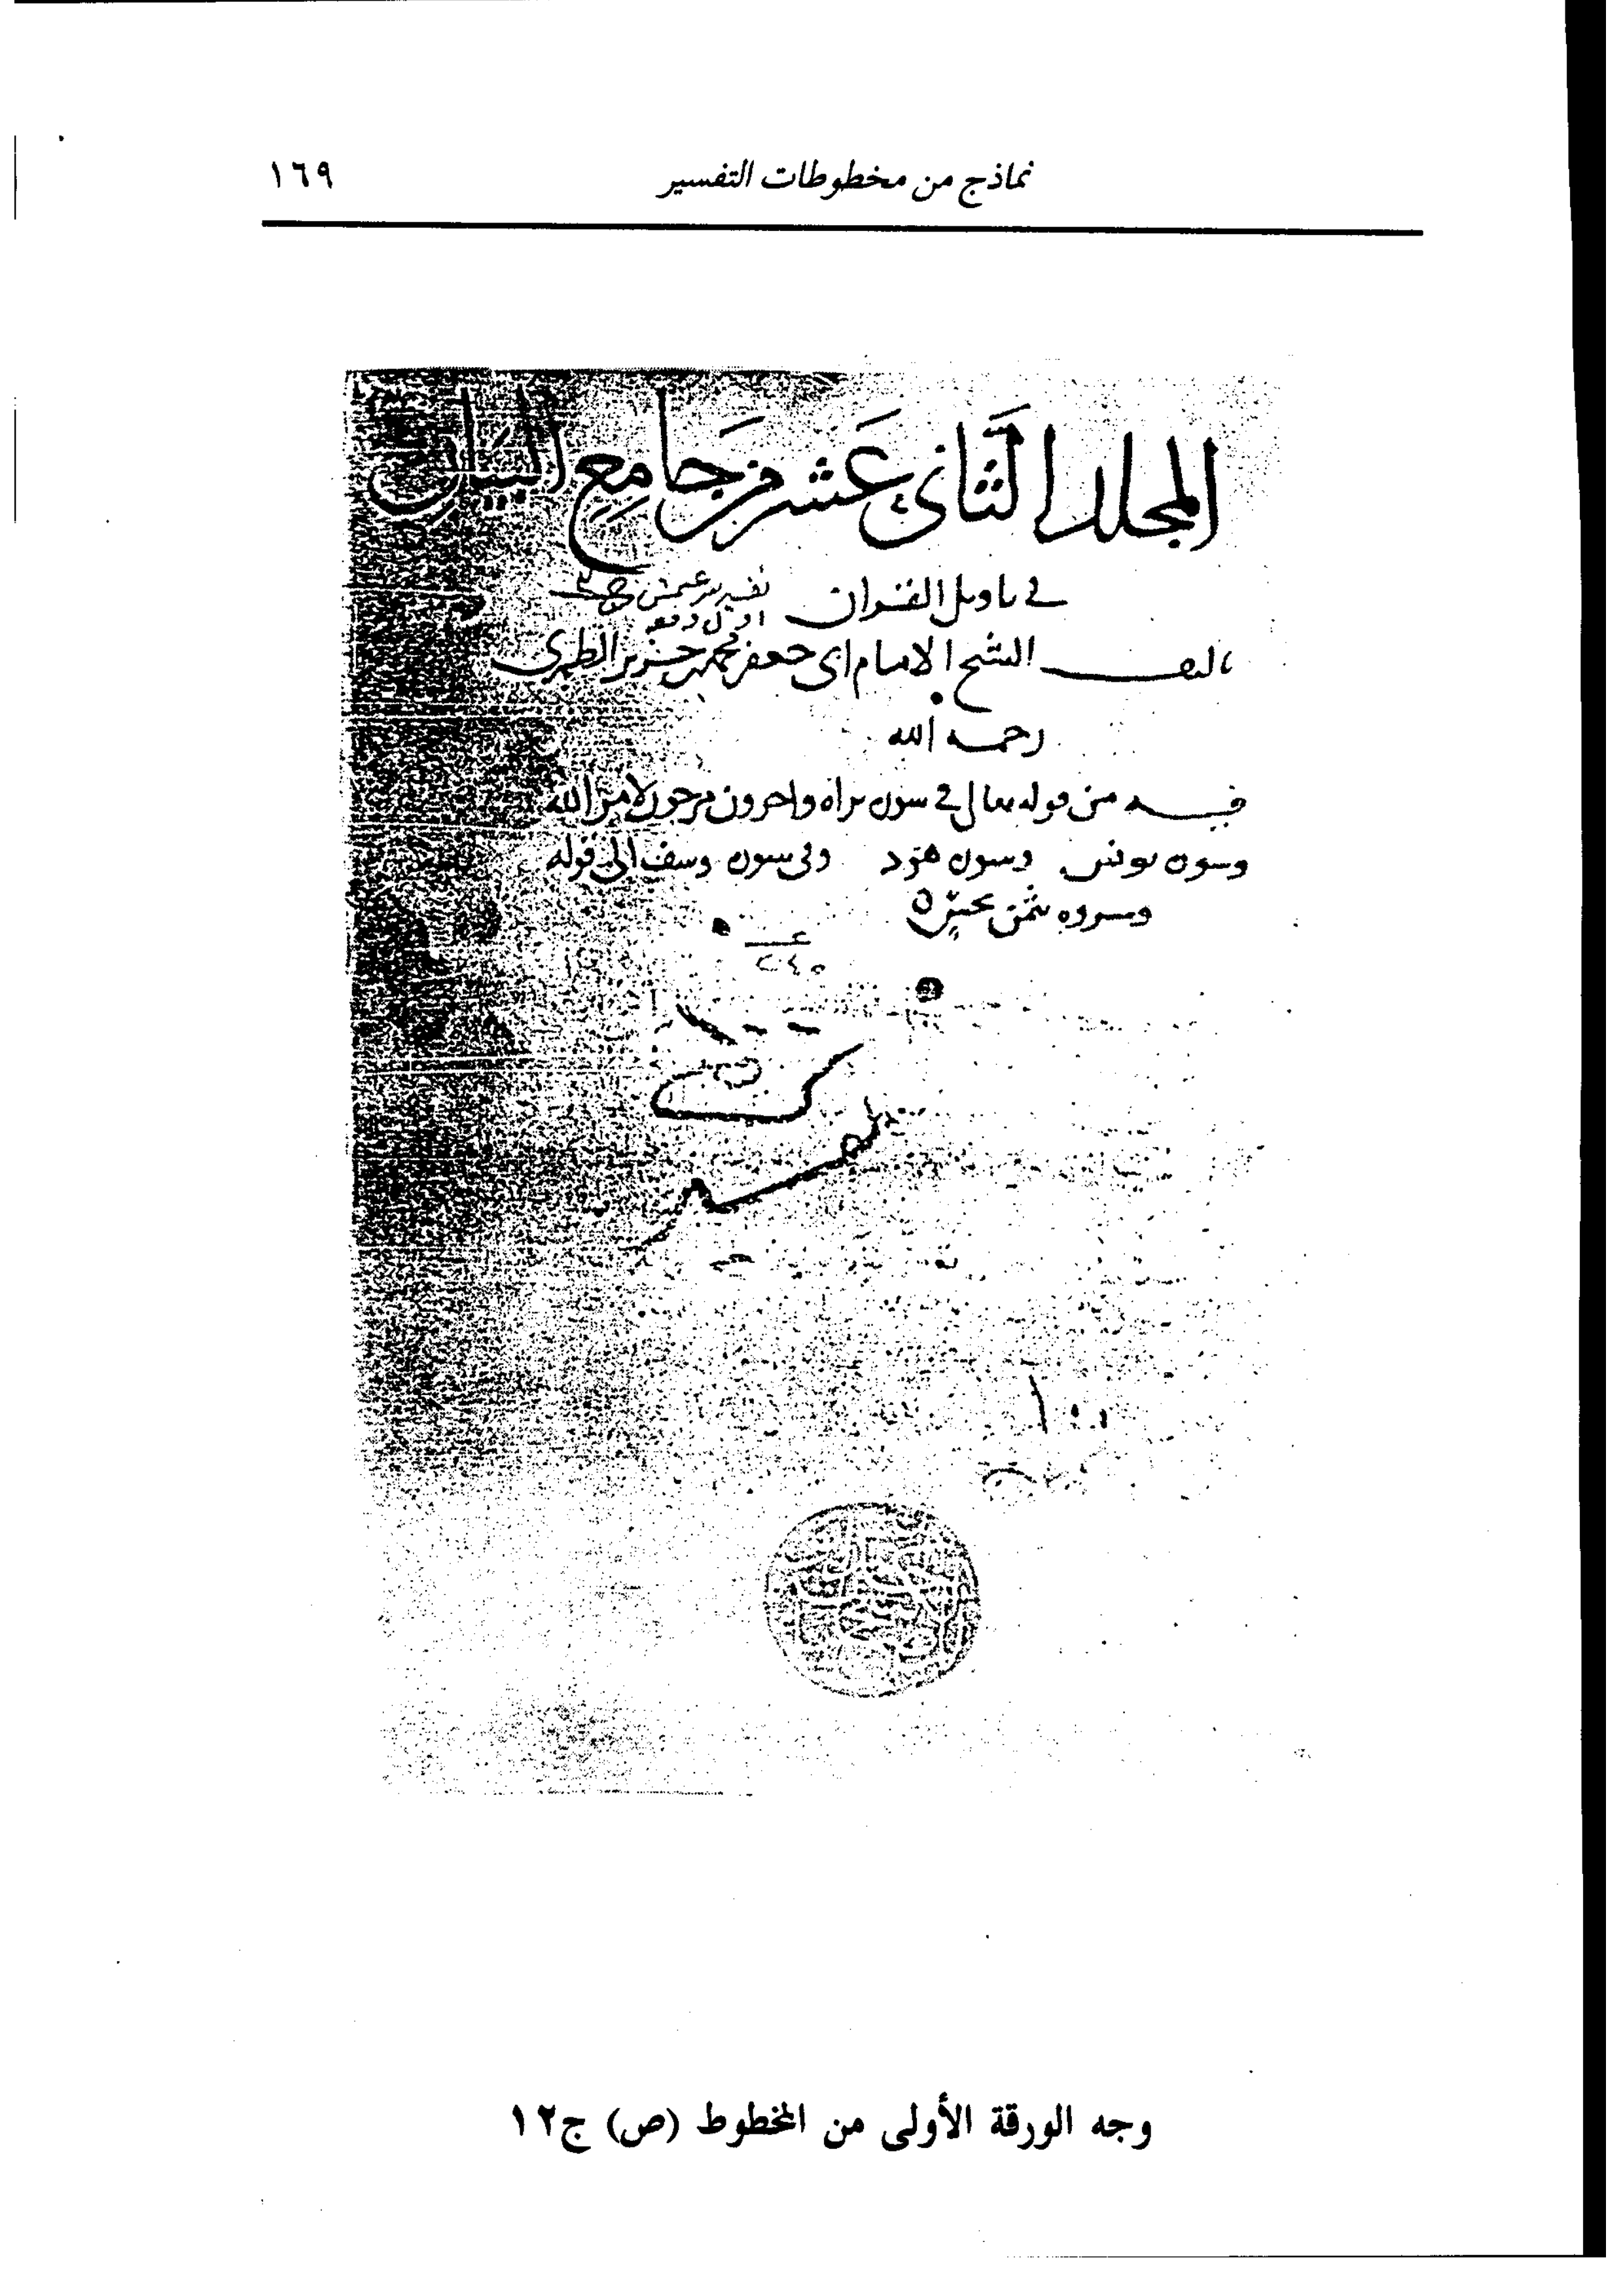 نماذج من مخطوطات التفسير ١٦٩
المجلد الثاني عشر من جامع البيان
في تاويل القران
تاليف الشيخ الامام ابي جعفر محمد بن جرير الطبري
رحمه الله
فيه من قوله تعالى في سورة براة واخرون مرجون لامر الله
وسورة يونس وسورة هود وفي سورة يوسف الى قوله
وشروه بثمن بخس
وجه الورقة الأولى من المخطوط (ص) ج١٢